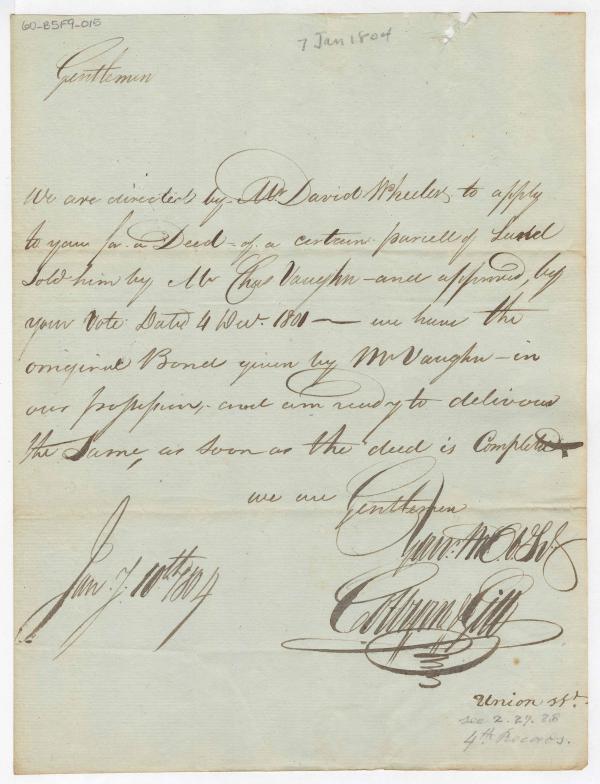 60-B5F9-015
7 Jan 1804
Gentlemen
We are directed by Mr David Wheeler, to apply
to you for a Deed of a certain parcell of Land
Sold him by Mr Chas Vaughn and approved, by
your Vote Dated 4 Decr. 1801 — we have the
original Bond given by Mr Vaughn in
our possession, and am ready to deliver
the Same, as soon as the deed is Complete
we are Gentlemen
Your
Jany. 10th 1804
Cobb
Union St.
see 2.29.
4th Records.